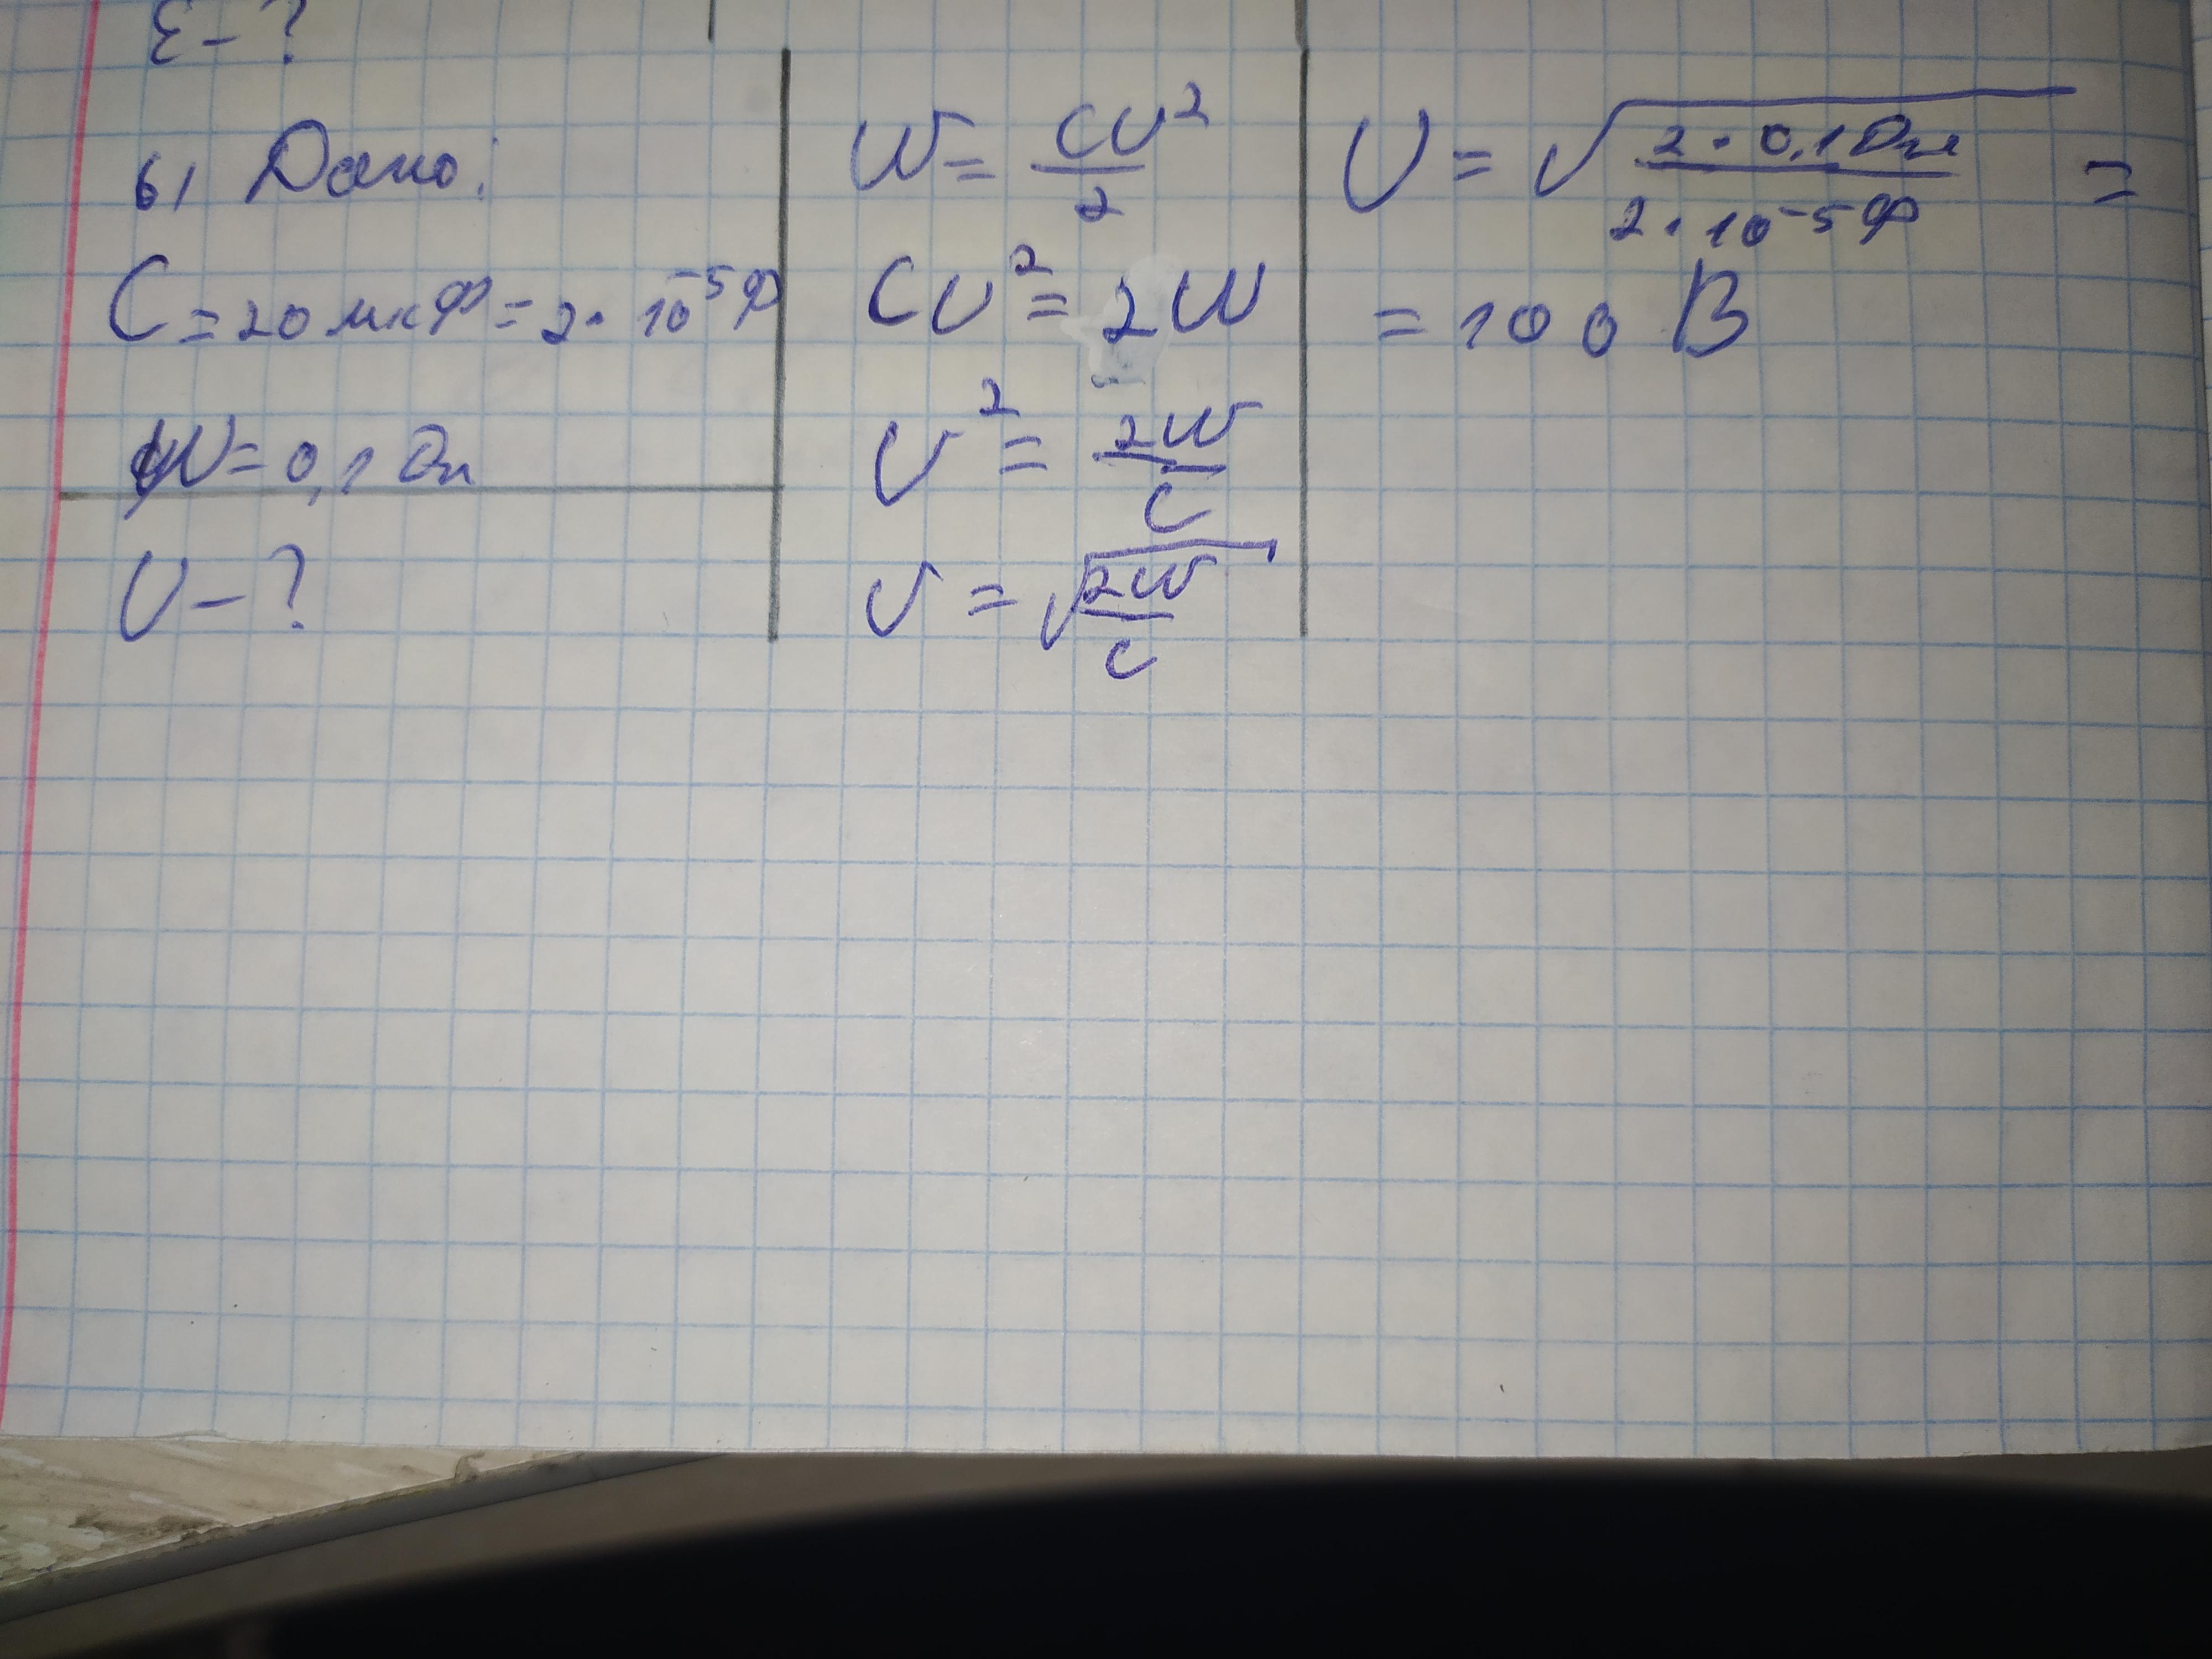 ε - ?
6) Дано:
C = 20 мкФ = 2 · 10⁻⁵ Ф
W = 0,1 Дж
U - ?
W = CU²/2
CU² = 2W
U² = 2W/C
U = √(2W/C)
U = √(2 · 0,1 Дж / 2 · 10⁻⁵ Ф) =
= 100 В